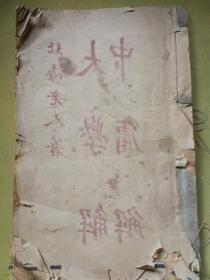 大學解
中庸解
北海老人著